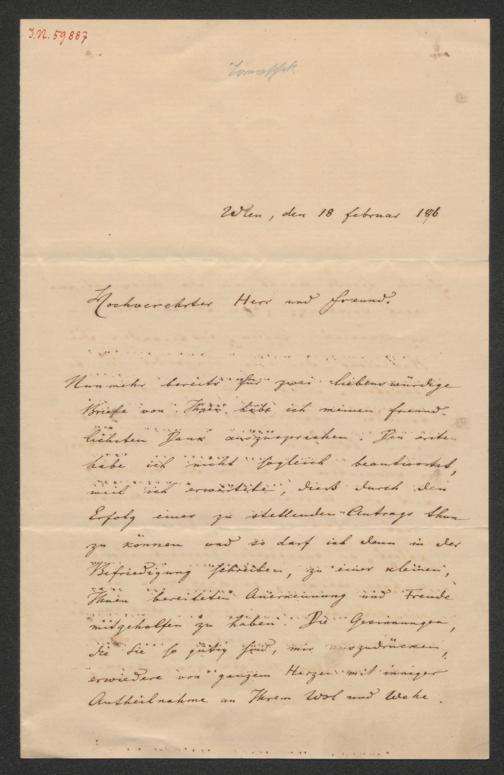 I.N. 59887
Tomaschek
Wien, den 18 Februar
Hochverehrter Herr und Freund.
Nunmehr bereits für zwei liebenswürdige
Briefe von Ihnen habe ich meinen freund-
lichsten Dank auszusprechen. Den ersten
habe ich nicht sogleich beantwortet,
weil ich erwartete, dieß durch den
Erfolg eines zu stellenden Antrags thun
zu können und so darf ich denn in der
Befriedigung schreiben, zu einer kleinen,
Ihnen bereiteten Anerkennung und Freude
mitgeholfen zu haben. Die Gesinnungen,
die Sie so gütig sind, mir auszudrücken,
erwiedere von ganzem Herzen mit inniger
Antheilnahme an Ihrem Wol und Wehe.